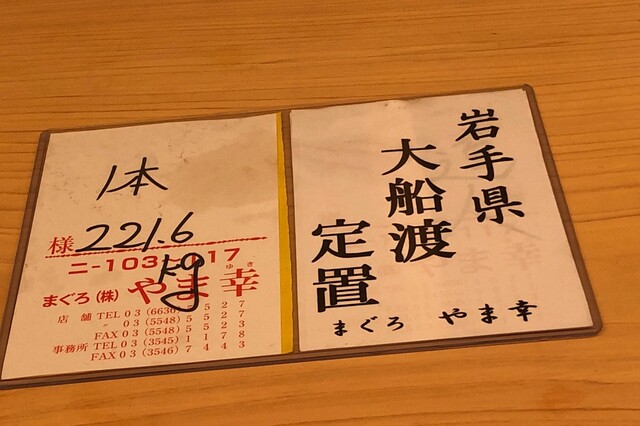 岩手県
大船渡
定置
まぐろ やま幸
1本
様 221.6
kg
まぐろ(株) やま幸
ゆき
店舗 TEL 03(6636)5527
〃 03(5548)5523
FAX 03(5548)5522
事務所 TEL 03(3545)1178
FAX 03(3546)7443